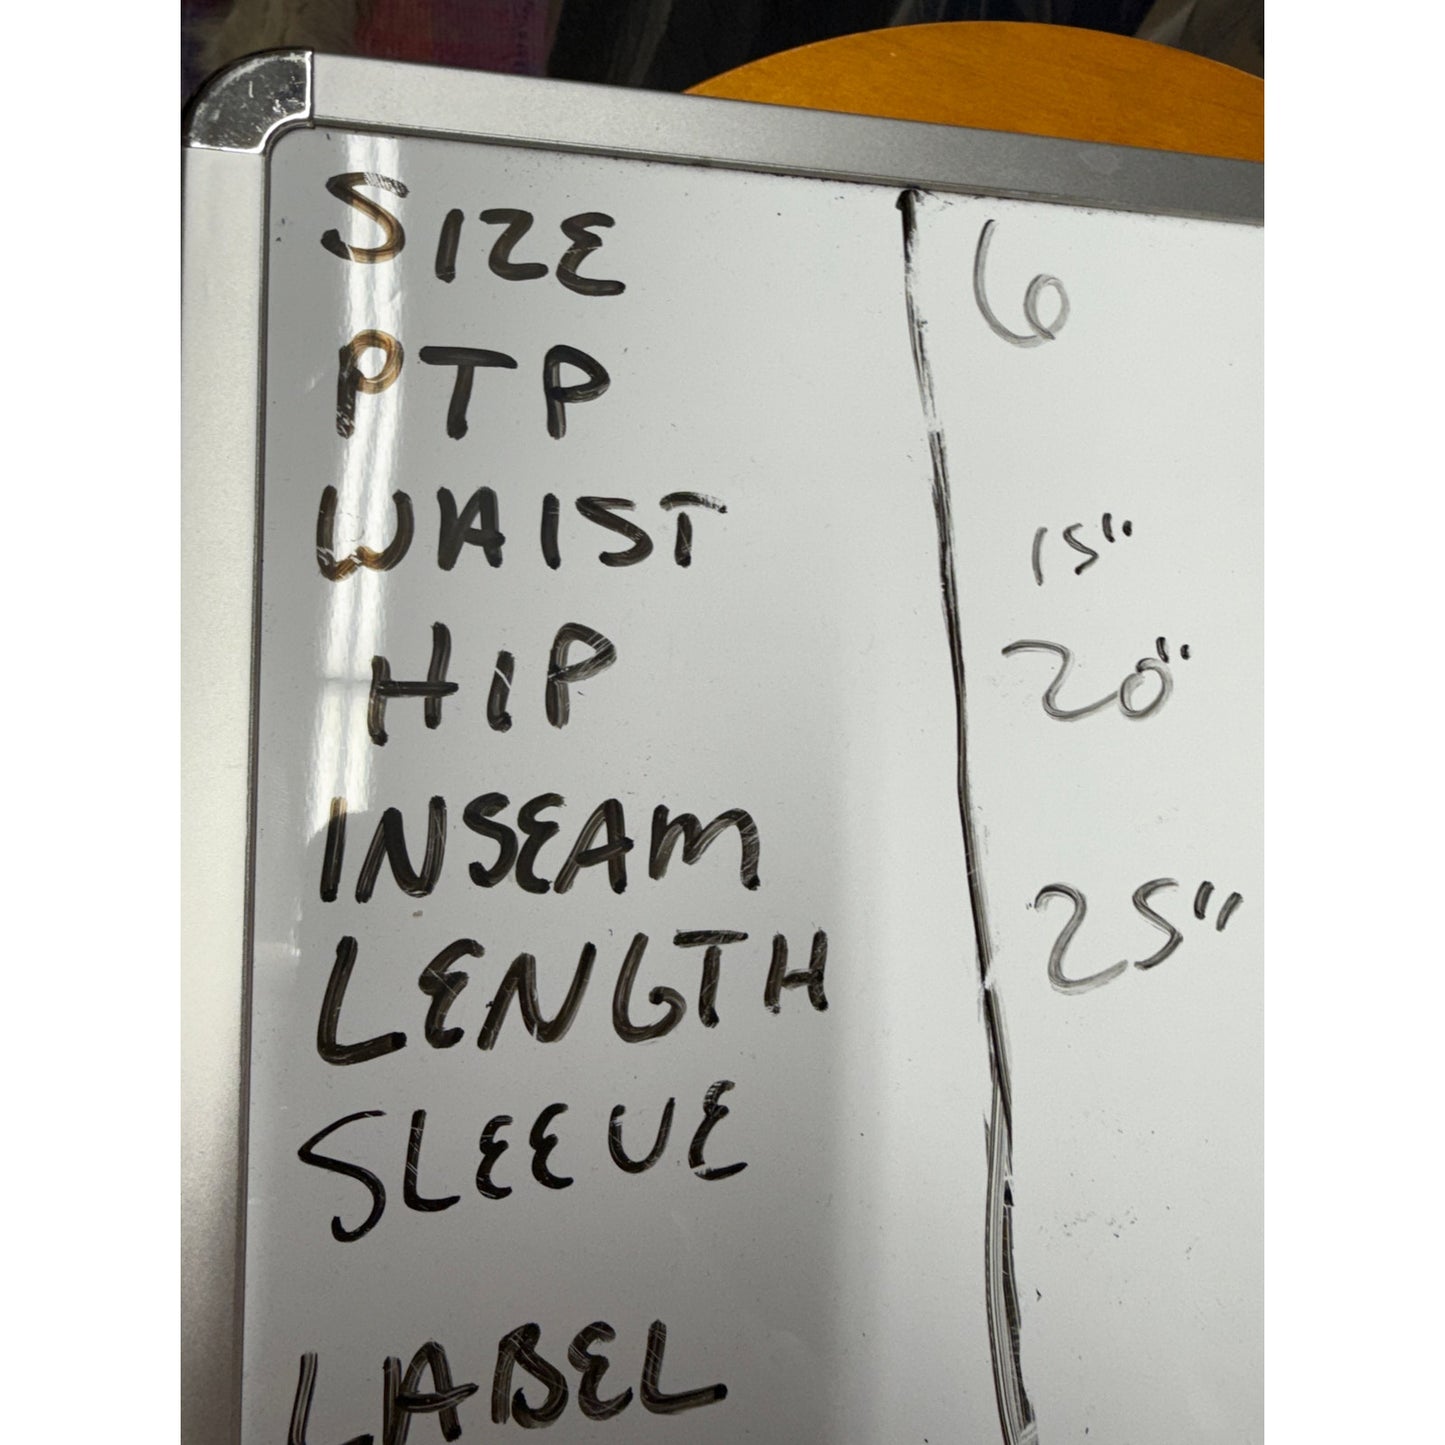 SIZE 6
PTP
WAIST 15"
HIP 20"
INSEAM 25"
LENGTH
SLEEVE
LABEL